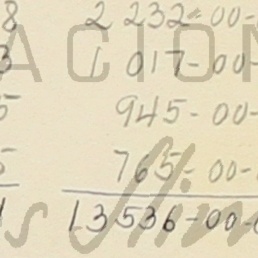 8 2 232-00-
3 1 017-00-
5 945-00-
5 765-00-
1 13 536-00-